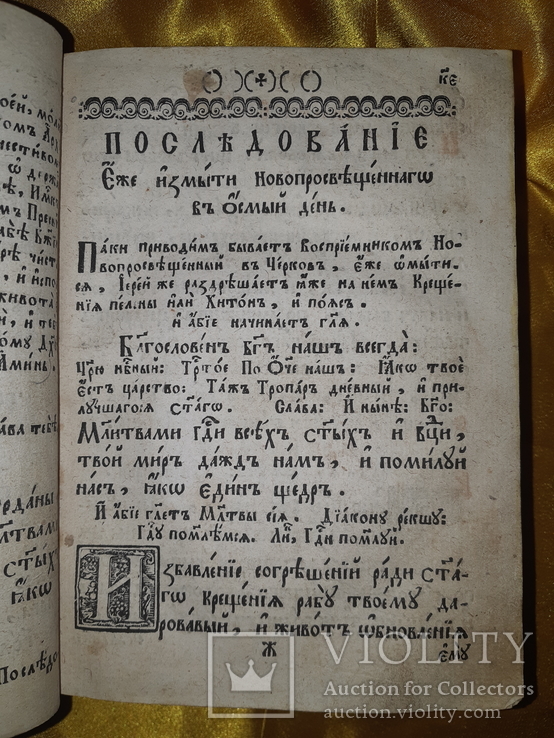 к҃е
ПОСЛѢДОВА́НІЕ
Е҆́же и҆змы́ти новопросвѣще́ннагѡ
въ ѻ҆́смый де́нь.
Па́ки приводи́мъ быва́етъ Воспріе́мникомъ Но-
вопросвѣще́нный въ Це́рковъ, Е҆́же ѡ҆мы́ти-
сѧ, І҆ере́й же раздрѣша́етъ ꙗ҆́же на не́мъ Креще́-
нїѧ пелены̀ и҆лѝ Хито́нъ, и҆ по́ѧсъ.
и҆ а҆́бїе начина́етъ гл҃ѧ.
Бл҃гослове́нъ Бг҃ъ на́шъ всегда̀:
Цр҃ю нбⷭ҇ный: Трⷭ҇то́е По Ѻ҆́ч҃е на́шъ: Ꙗ҆́кѡ твоѐ
Е҆́стъ ца́рство: Та́жъ Тропа́р дне́вный, и҆ при-
лꙋ́чшагосѧ ст҃а́гѡ. Сла́ва: И҆ ны́нѣ: Бг҃о:
Мл҃твами гдⷭ҇и всѣ́хъ ст҃ы́хъ и҆ бц҃и,
тво́й ми́ръ да́ждъ на́мъ, и҆ поми́лꙋй
на́съ, ꙗ҆́кѡ Е҆ди́нъ ще́дръ.
И҆ а҆́бїе гл҃етъ Мл҃твы сїѧ̀. Дїа́конꙋ ре́кшꙋ:
Гдⷭ҇ꙋ помо́лѣмсѧ. Ли́к, Гдⷭ҇и поми́лꙋй.
И҆збавле́нїе согрѣше́нїй ра́ди ст҃а́-
гѡ Креще́нїѧ рабꙋ̀ твоемꙋ̀ да-
рова́вый, и҆ живо́тъ ѡ҆бновле́нїѧ
Ж
е҆мꙋ̀
VIOLITY
Auction for Collectors
auction.violity.com